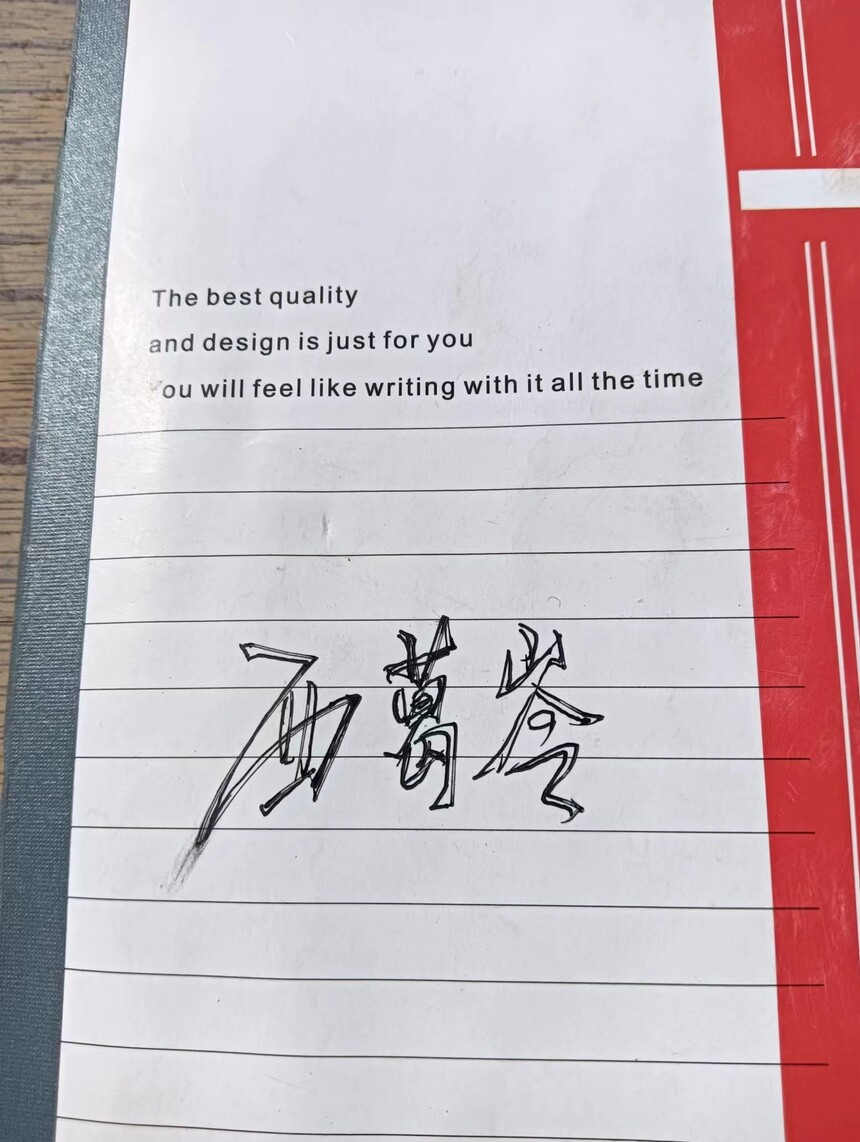 The best quality
and design is just for you
You will feel like writing with it all the time
西葛岑